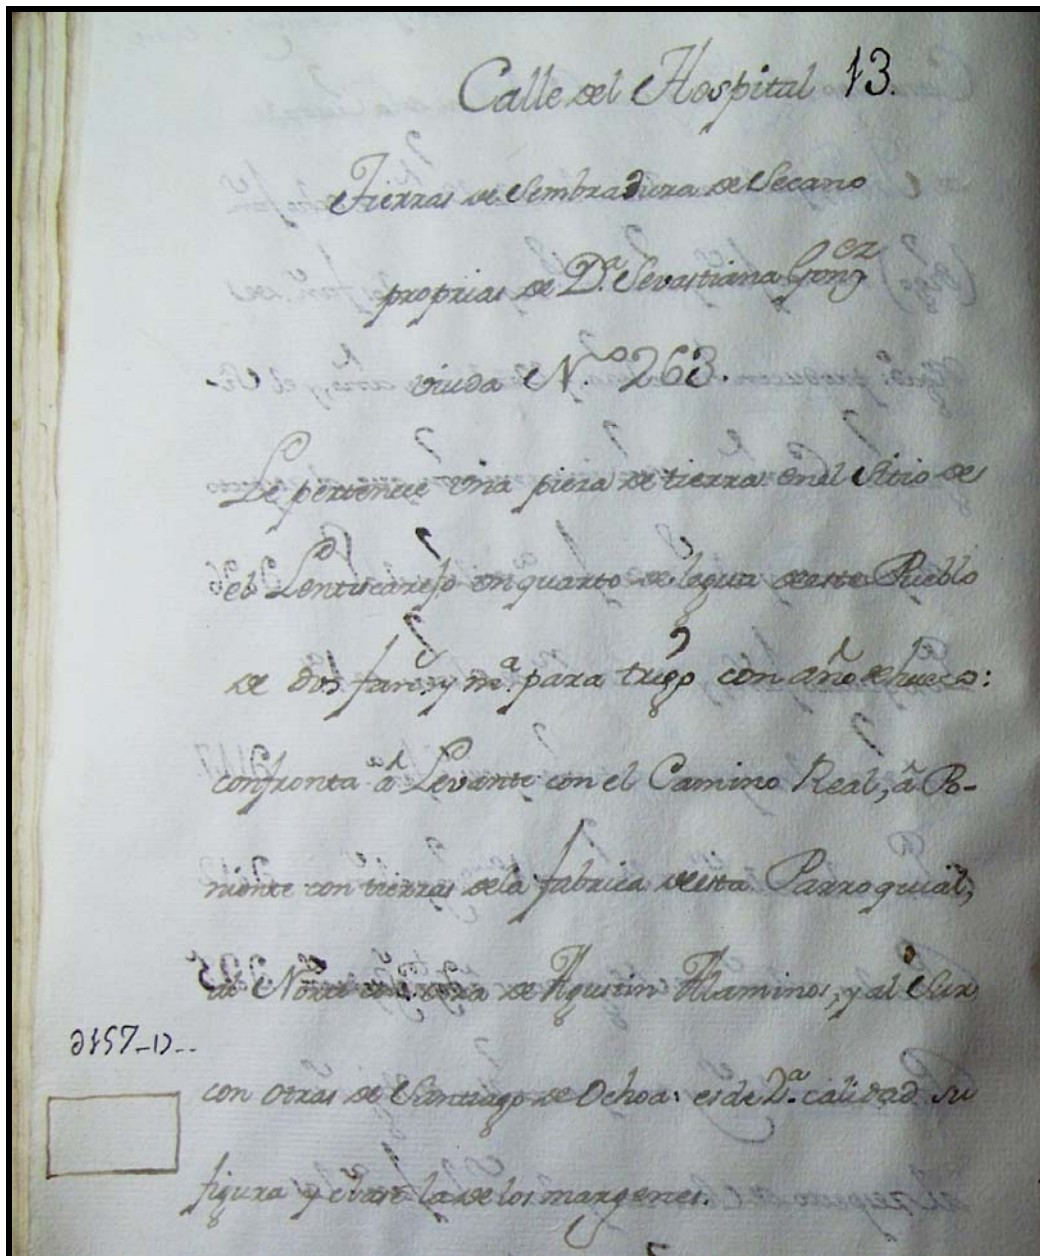 Calle del Hospital 13.
Tierras de Sembradura de Secano
proprias de D.ª Sevastiana Gonz.ez
viuda N.º 263.
Le pertenece una pieza de tierra en el Sitio de
el Lentiscarejo un quarto de legua de este Pueblo
de dos fan.s y m.ª para trigo con año de hueco:
confronta a Levante con el Camino Real, â Po-
niente con tierras de la fabrica de esta Parroquial,
al Norte con otra de Agustin Alaminos, y al Sur
con otras de Santiago de Ochoa: es de 2.ª calidad su
figura y clase la de los margenes.